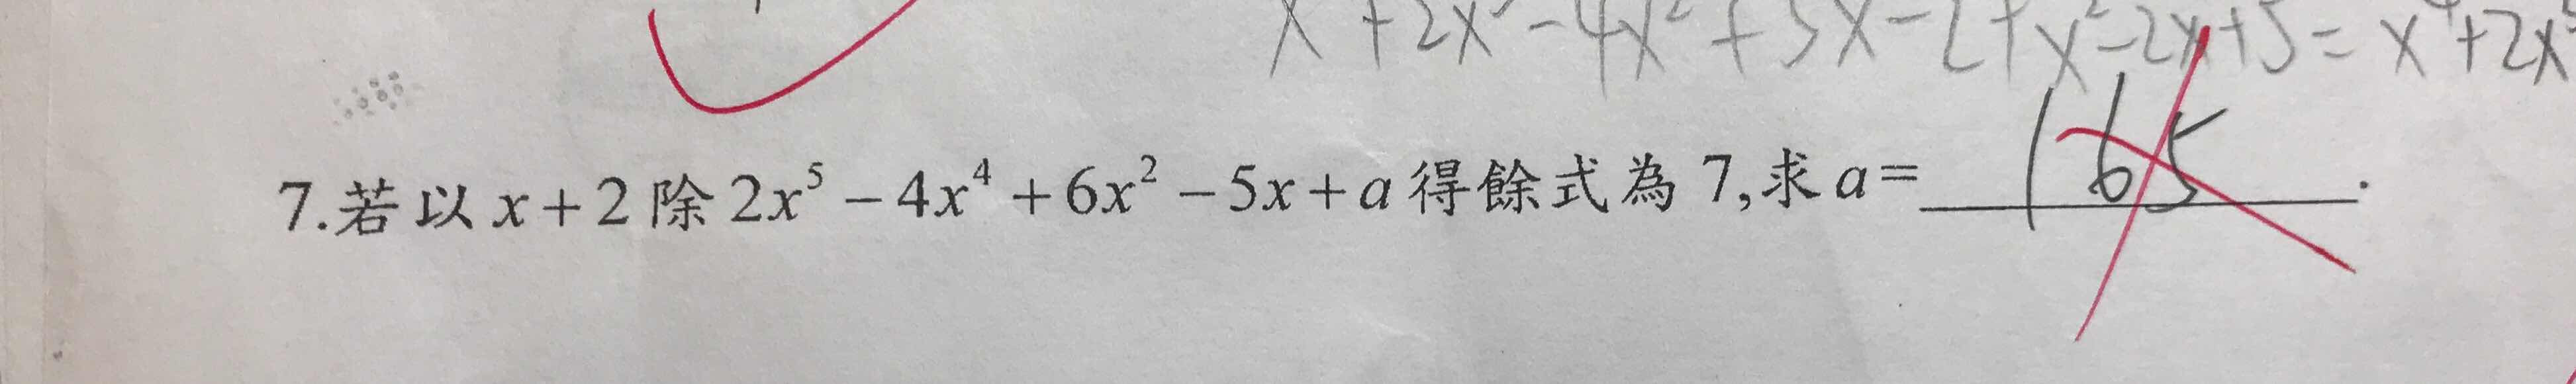 x + 2x³ - 4x² + 5x - 2 + x² - 2x + 5 = x⁴ + 2x³
7.若以 x + 2 除 2x⁵ - 4x⁴ + 6x² - 5x + a 得餘式為 7,求 a = 165.